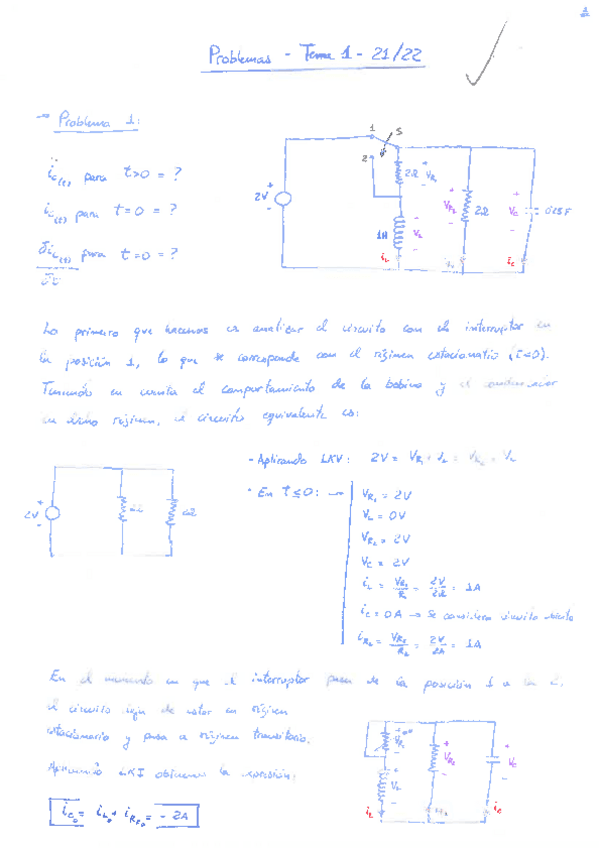 Problemas - Tema 1 - 21/22
→ Problema 1:
i_C(t) para t>0 = ?
i_C(t) para t=0 = ?
para t=0 = ?
1
S
2
2V
+
-
2Ω V_R1
1H
V_L
i_L
V_R2
2Ω
V_C
0.25F
i_C
Lo primero que hacemos es analizar el circuito con el interruptor en
la posición 1, lo que se corresponde con el régimen estacionario (t<0).
Teniendo en cuenta el comportamiento de la bobina y el condensador
en dicho régimen, el circuito equivalente es:
2V
+
-
2Ω
2Ω
- Aplicando LKV: 2V =
· En t≤0: →
V_R1 = 2V
V_L = 0V
V_R2 = 2V
V_C = 2V
i_L = V_R1/R = 2V/2Ω = 1A
i_C = 0A → Se considera circuito abierto
i_R2 = V_R2/R_2 = 2V/2Ω = 1A
En el momento en que el interruptor pasa de la posición 1 a la 2,
el circuito deja de estar en régimen
estacionario y pasa a régimen transitorio.
Aplicando LKI obtenemos la expresión:
i_C0 = i_L0 + i_R20 = - 2A
V_L
i_L
V_R2
V_C
i_C